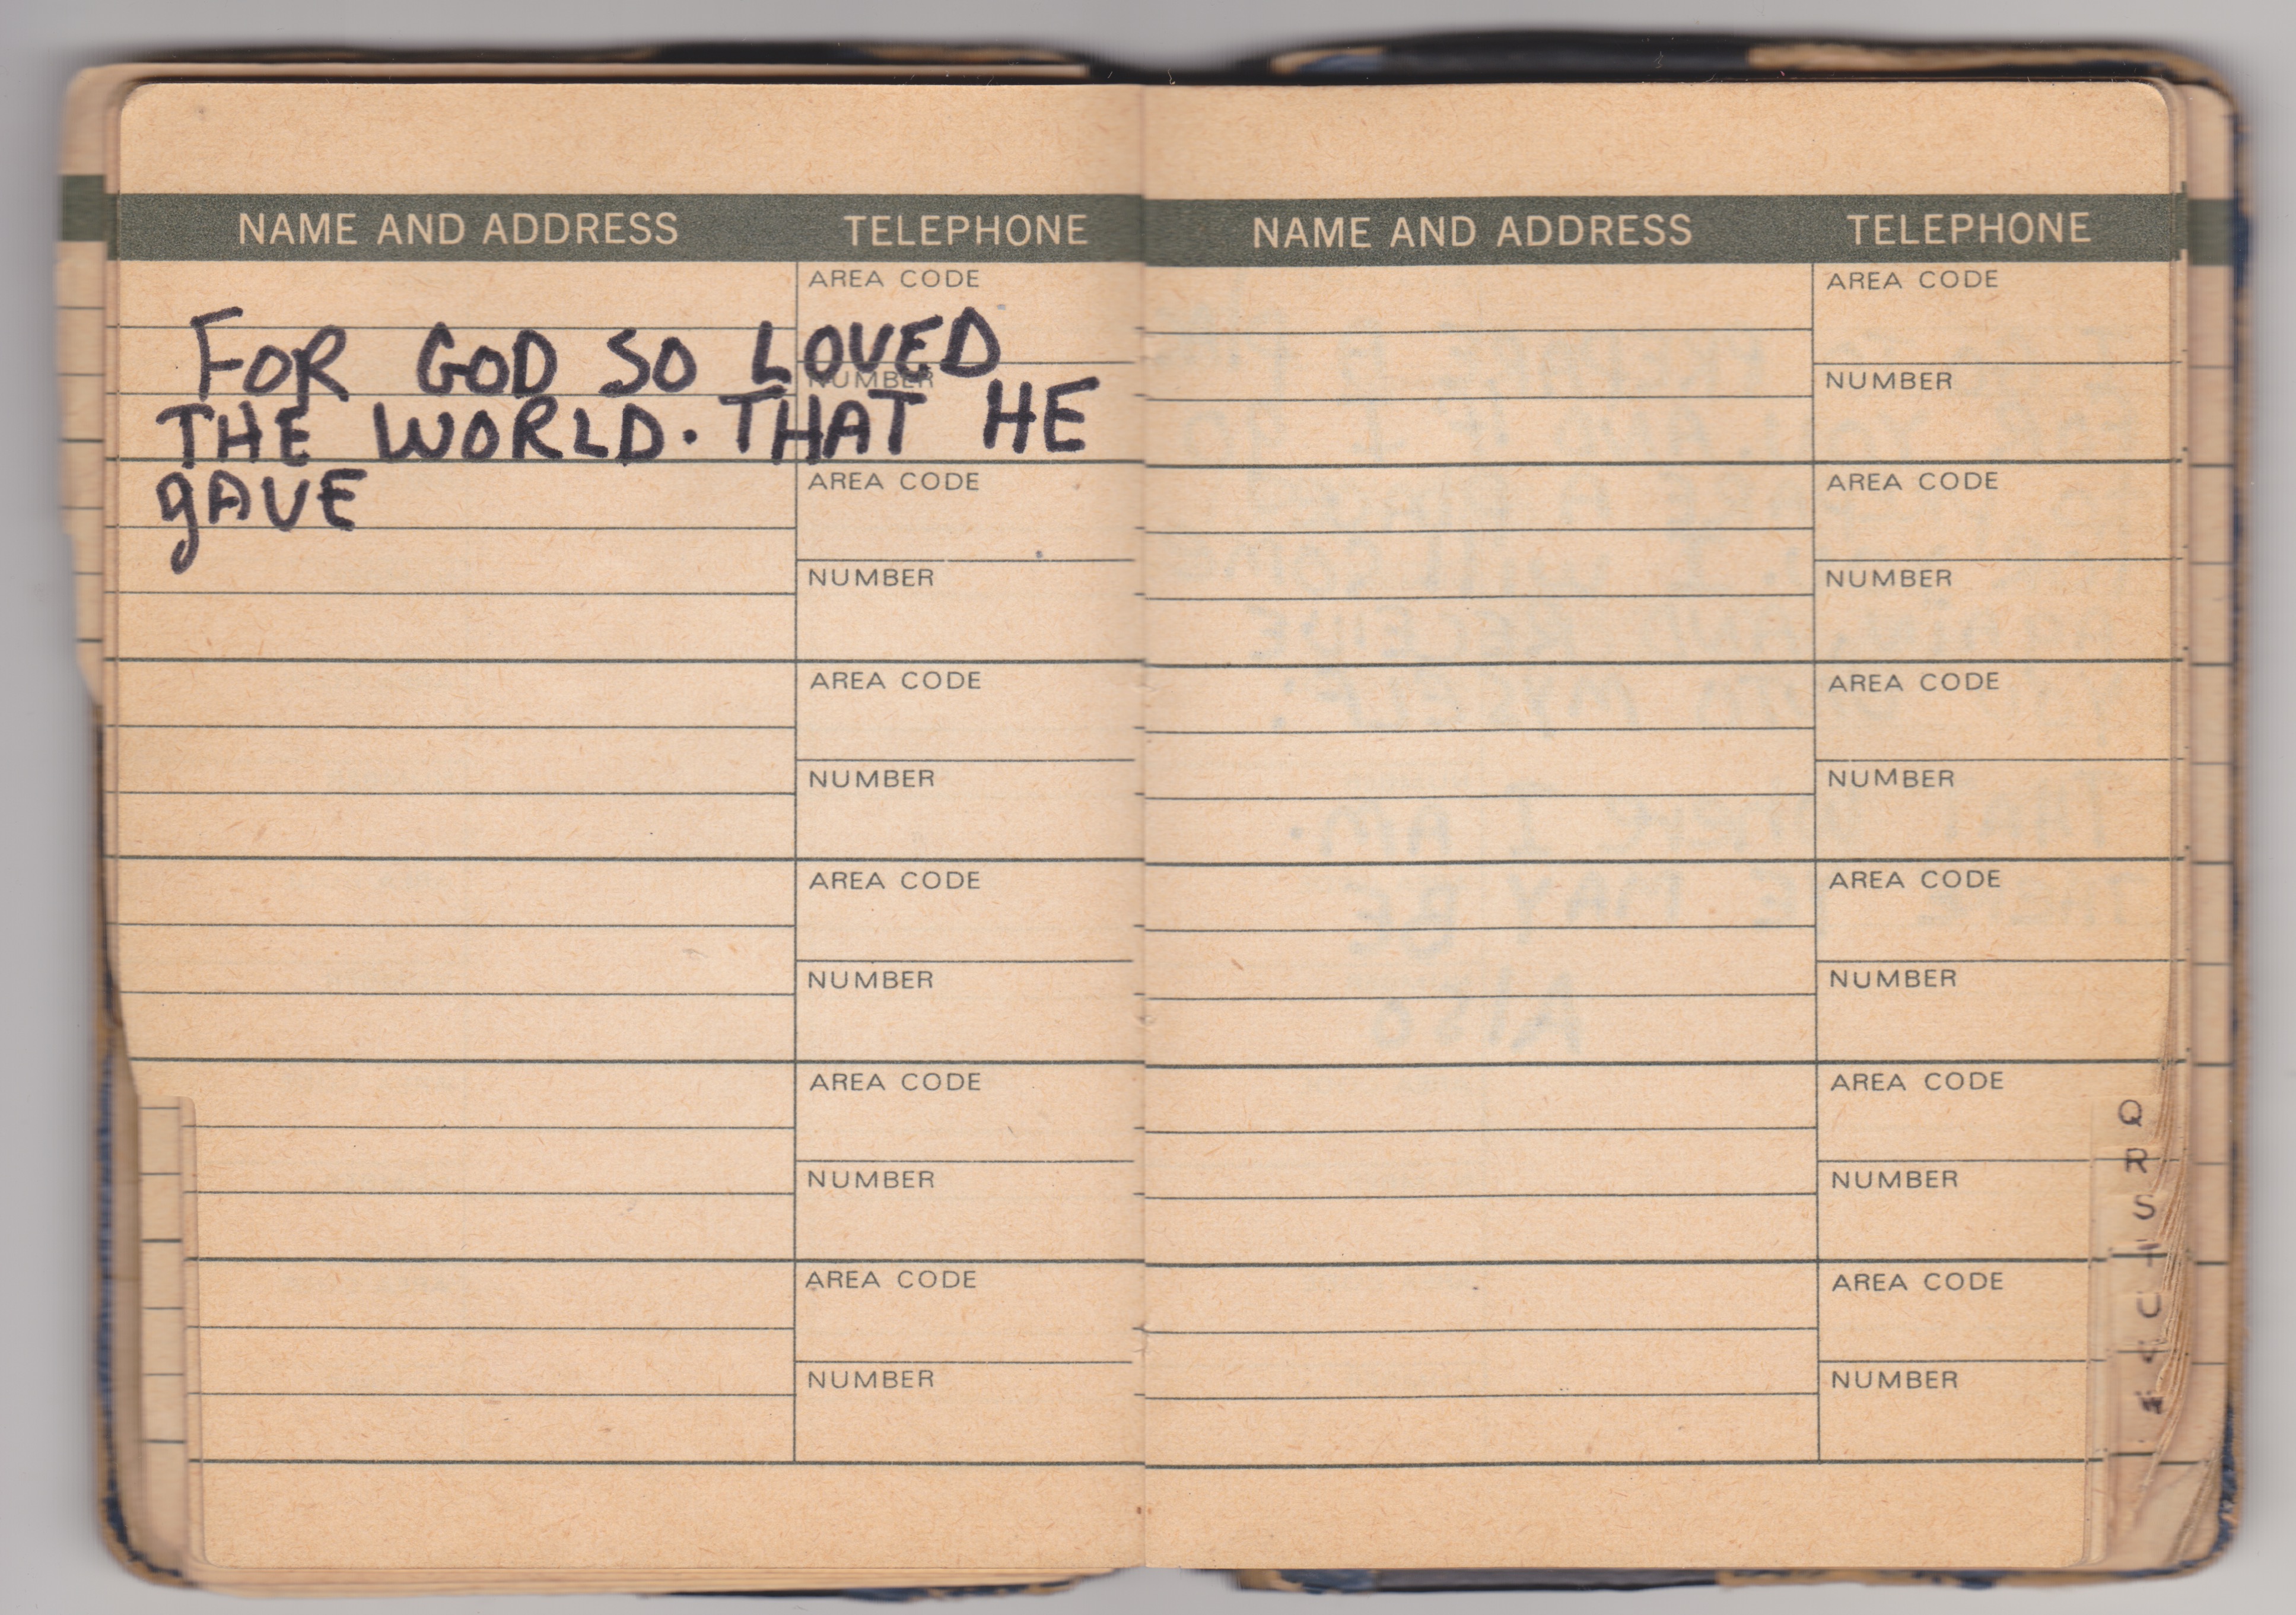 NAME AND ADDRESS TELEPHONE
AREA CODE
FOR GOD SO LOVED
NUMBER
THE WORLD. THAT HE
gAVE
AREA CODE
NUMBER
AREA CODE
NUMBER
AREA CODE
NUMBER
AREA CODE
NUMBER
AREA CODE
NUMBER
NAME AND ADDRESS TELEPHONE
AREA CODE
NUMBER
AREA CODE
NUMBER
AREA CODE
NUMBER
AREA CODE
NUMBER
AREA CODE
NUMBER
AREA CODE
NUMBER
Q
R
S